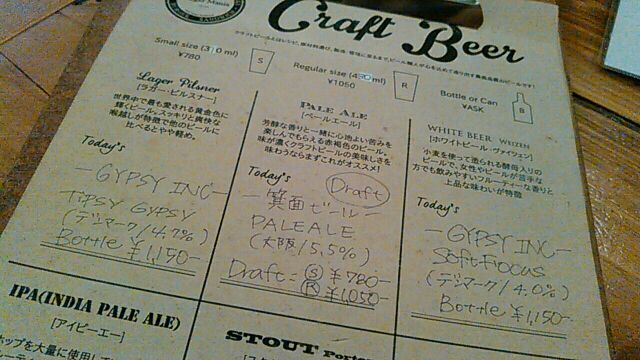 Craft Beer
クラフトビールとはレシピ、原材料選び、製造、管理に至るまでビール職人が心を込めて造り出す高品質なビールです!
Small size (310ml)
¥780
S
Regular size (430ml)
¥1050
R
Bottle or Can
¥ASK
B
Lager Pilsner
[ラガー・ピルスナー]
世界中で最も愛される黄金色に
輝くビール。スッキリと爽快な
喉越しが特徴で他のビールに
比べるとやや軽め。
Today's
-GYPSY INC-
TIPSY GYPSY
(デンマーク/4.7%)
Bottle ¥1,150-
PALE ALE
[ペールエール]
芳醇な香りと一緒に心地よい苦みを
楽しんでもらえる赤褐色のビール。
味が濃くクラフトビールの美味しさを
味わうならまずこれがオススメ!
Today's
Draft
-箕面ビール-
PALE ALE
(大阪/5.5%)
Draft = S ¥780-
R ¥1,050-
WHITE BEER WEIZEN
[ホワイトビール・ヴァイツェン]
小麦を使って造られる酵母入りの
ビールで、女性やビールが苦手な
方でも飲みやすいフルーティーな香りと
上品な味わいが特徴
Today's
-GYPSY INC-
SOFT FOCUS
(デンマーク/4.0%)
Bottle ¥1,150-
IPA(INDIA PALE ALE)
[アイピーエー]
ホップを大量に使用して
STOUT Porter